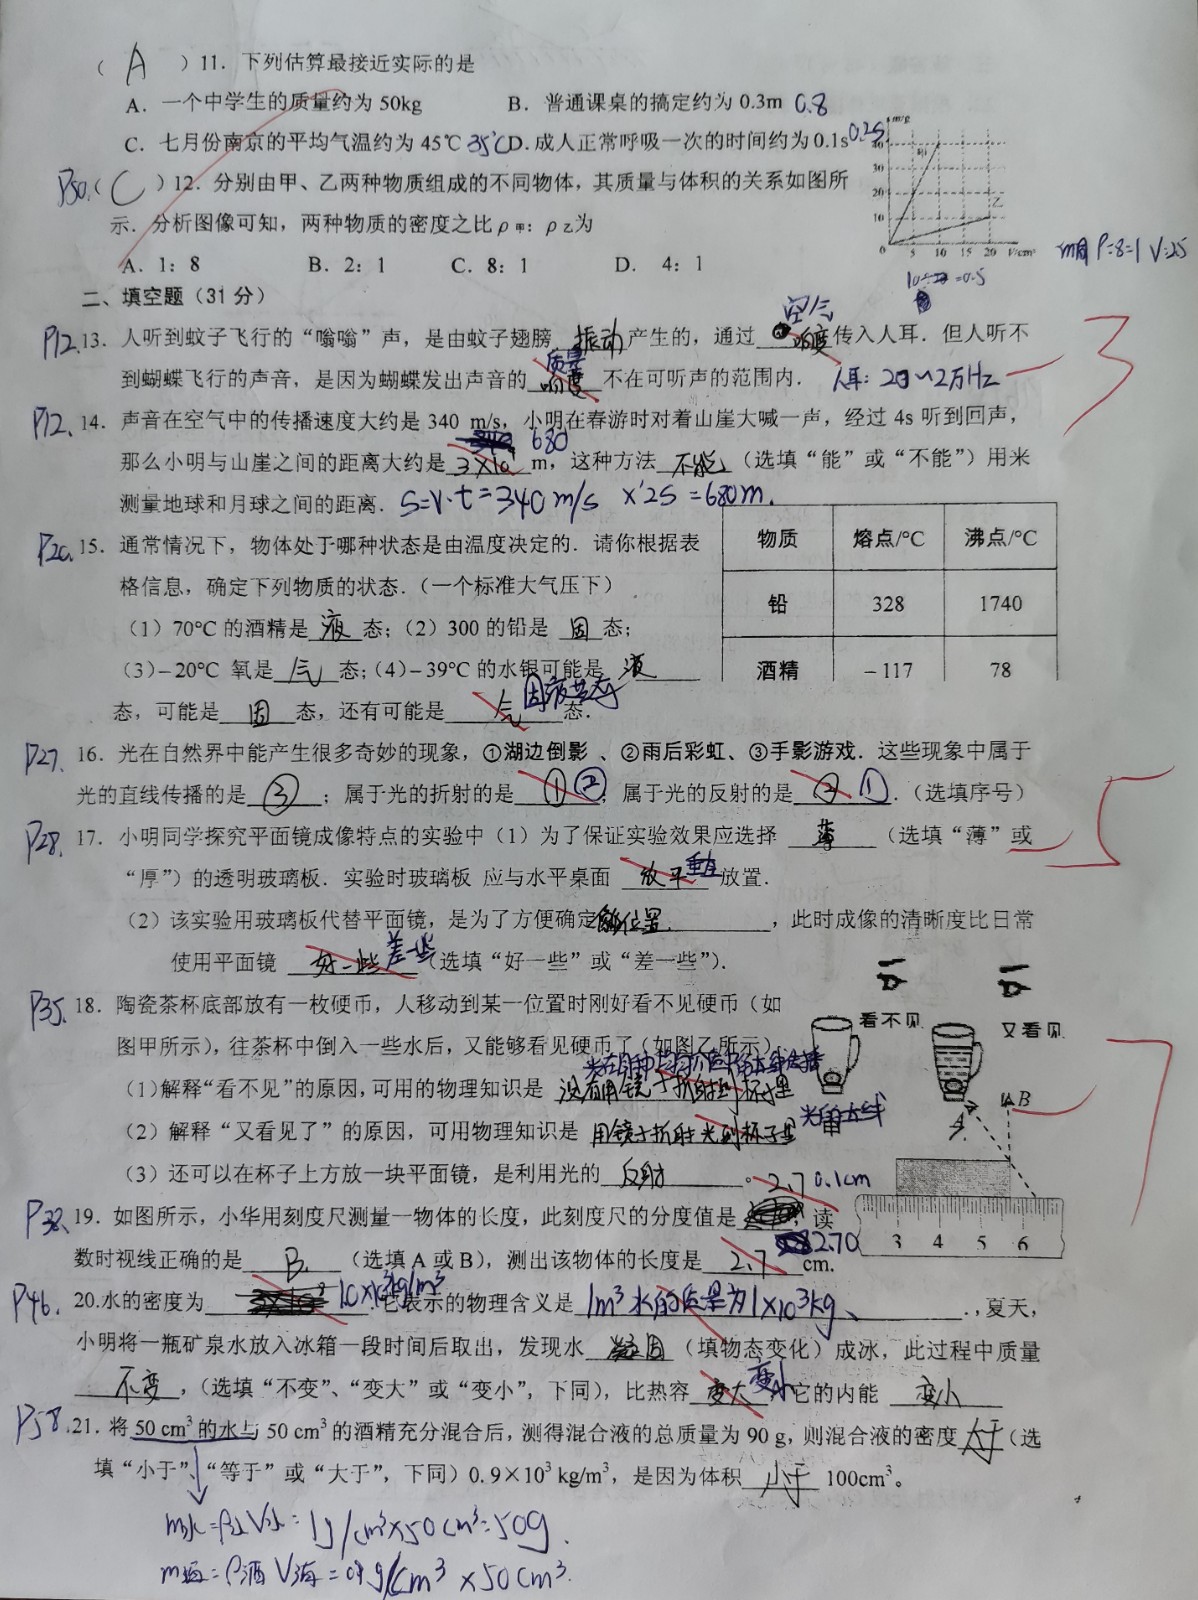 （ A ）11．下列估算最接近实际的是
A．一个中学生的质量约为 50kg B．普通课桌的搞定约为 0.3m 0.8
C．七月份南京的平均气温约为 45℃ 35℃ D．成人正常呼吸一次的时间约为 0.1s 0.2s
P50.（ C ）12．分别由甲、乙两种物质组成的不同物体，其质量与体积的关系如图所
示．分析图像可知，两种物质的密度之比ρ甲：ρ乙为
A．1：8 B．2：1 C．8：1 D． 4：1
m/g
40
30
20
10
0 5 10 15 20 V/cm³
甲
乙
二、填空题（31 分）
P12. 13．人听到蚊子飞行的“嗡嗡”声，是由蚊子翅膀 振动 产生的，通过 响度 空气 传入人耳．但人听不
到蝴蝶飞行的声音，是因为蝴蝶发出声音的 响度 不在可听声的范围内．
3
P12. 14．声音在空气中的传播速度大约是 340 m/s，小明在春游时对着山崖大喊一声，经过 4s 听到回声，
那么小明与山崖之间的距离大约是 680 m，这种方法 不能 （选填“能”或“不能”）用米
测量地球和月球之间的距离．S=V·t=340m/s ×2s =680m.
P20. 15．通常情况下，物体处于哪种状态是由温度决定的．请你根据表
格信息，确定下列物质的状态．（一个标准大气压下）
（1）70℃ 的酒精是 液 态；（2）300 的铅是 固 态；
（3）−20℃ 氧是 气 态；（4）−39℃ 的水银可能是 液
态，可能是 固 态，还有可能是 气 固液共存 态．
物质 熔点/℃ 沸点/℃
铅 328 1740
酒精 −117 78
P27. 16．光在自然界中能产生很多奇妙的现象，①湖边倒影 、②雨后彩虹、③手影游戏．这些现象中属于
光的直线传播的是 ③ ；属于光的折射的是 ① ②，属于光的反射的是 ② ① ．（选填序号）
5
P28. 17．小明同学探究平面镜成像特点的实验中（1）为了保证实验效果应选择 薄 （选填“薄”或
“厚”）的透明玻璃板．实验时玻璃板 应与水平桌面 放平 垂直 放置．
（2）该实验用玻璃板代替平面镜，是为了方便确定 像位置 ，此时成像的清晰度比日常
使用平面镜 好一些 差一些 （选填“好一些”或“差一些”）．
P35. 18．陶瓷茶杯底部放有一枚硬币，人移动到某一位置时刚好看不见硬币（如
图甲所示），往茶杯中倒入一些水后，又能够看见硬币了（如图乙所示）．
（1）解释“看不见”的原因，可用的物理知识是 没有用镜子折射到杯子里
（2）解释“又看见了”的原因，可用物理知识是 用镜子折射光到杯子里
（3）还可以在杯子上方放一块平面镜，是利用光的 反射 。
看不见
又看见
7
P38. 19．如图所示，小华用刻度尺测量一物体的长度，此刻度尺的分度值是 2.7 0.1cm ，读
数时视线正确的是 B. （选填 A 或 B），测出该物体的长度是 2.7 2.70 cm．
A
B
3 4 5 6
P46. 20.水的密度为 1.0×10³kg/m³ 它表示的物理含义是 1m³水的质量为1×10³kg、 ．，夏天，
小明将一瓶矿泉水放入冰箱一段时间后取出，发现水 凝固 （填物态变化）成冰，此过程中质量
不变 ，（选填“不变”、“变大”或“变小”，下同），比热容 变大 变小 ，它的内能 变小
P58. 21．将 50 cm³ 的水与 50 cm³ 的酒精充分混合后，测得混合液的总质量为 90 g，则混合液的密度 大于 （选
填“小于”、“等于”或“大于”，下同）0.9×10³ kg/m³，是因为体积 小于 100cm³。
m水=ρ水V水=1g/cm³×50cm³=50g.
m酒=ρ酒V酒= g/cm³ ×50cm³.